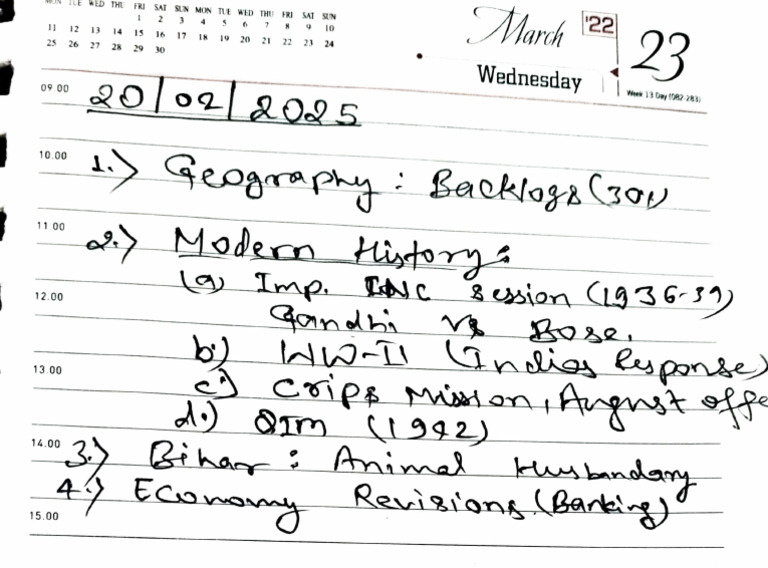 MON TUE WED THU FRI SAT SUN MON TUE WED THU FRI SAT SUN
1 2 3 4 5 6 7 8 9 10
11 12 13 14 15 16 17 18 19 20 21 22 23 24
25 26 27 28 29 30
March '22 23
Wednesday
Week 13 Day (082-283)
09.00 20/02/2025
10.00 1.) Geography : Backlogs
11.00 2.) Modern History:
(a) Imp. INC session (1936-39)
12.00 Gandhi vs Bose.
b.) WW-II (Indias Response)
13.00 c.) Crips Mission, August offe
d.) QIM (1942)
14.00 3.) Bihar : Animal Husbandary
4.) Economy Revisions (Banking)
15.00